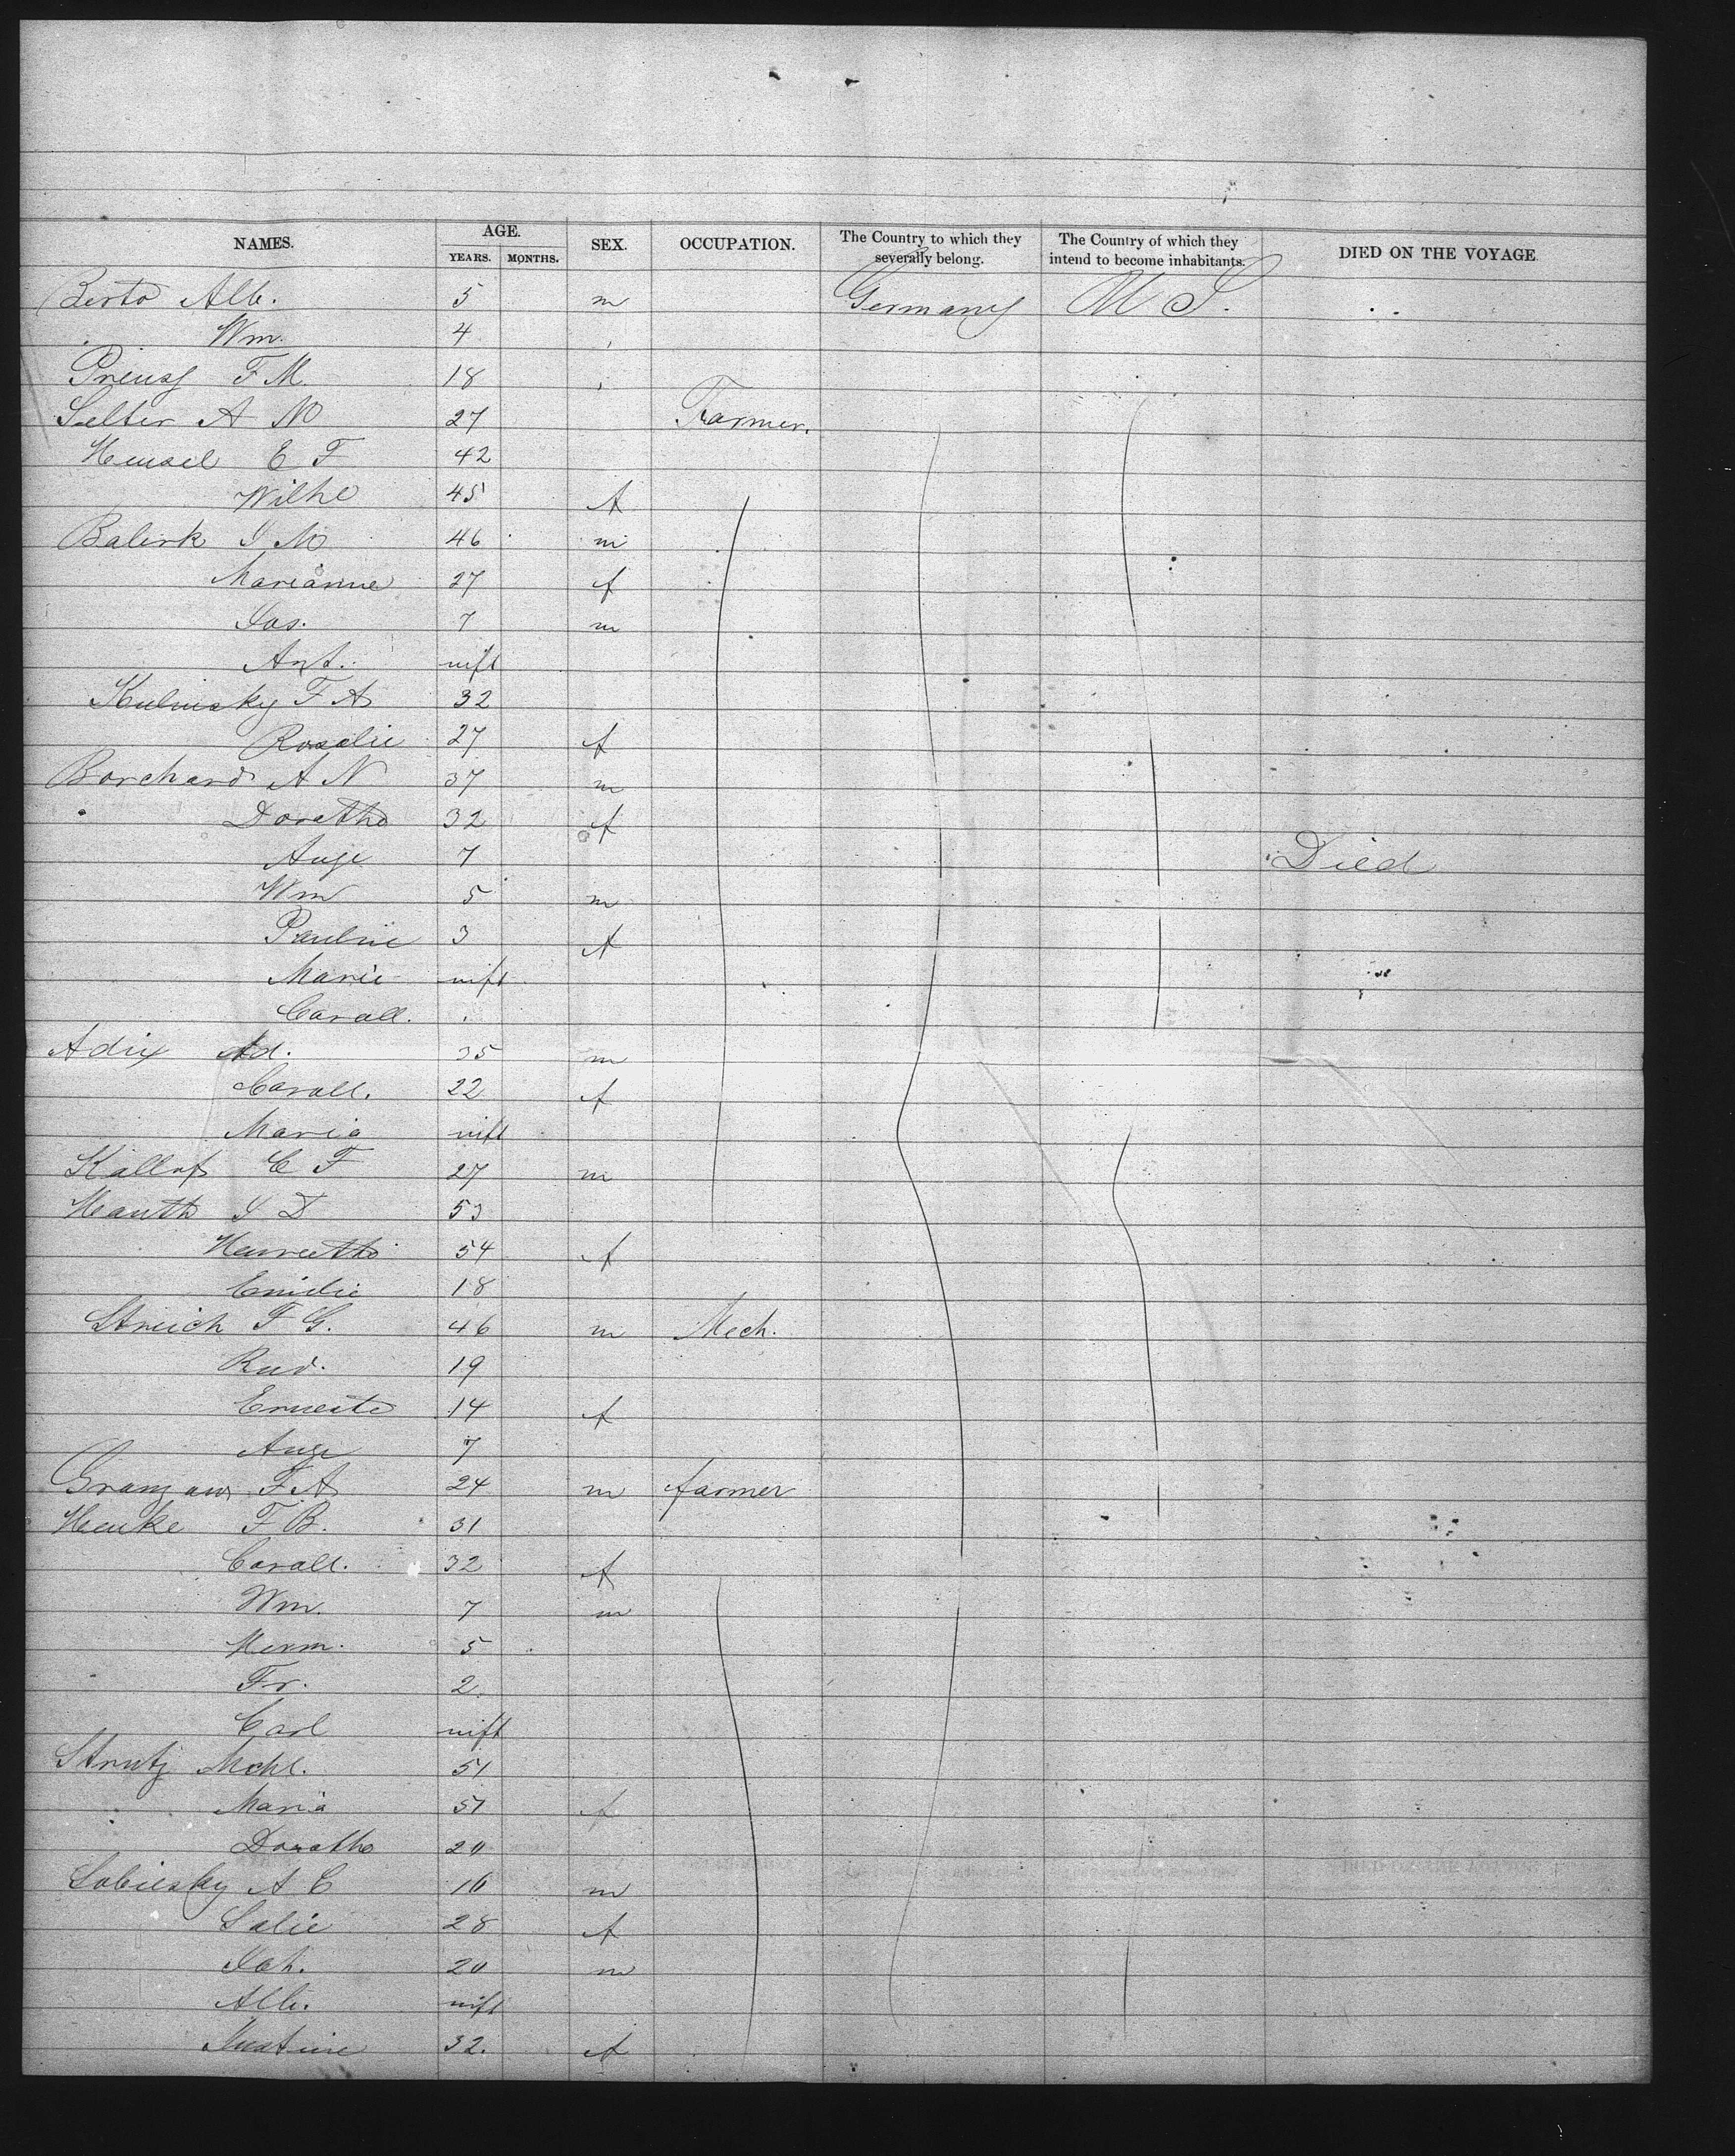 NAMES. AGE. SEX. OCCUPATION. The Country to which they severally belong. The Country of which they intend to become inhabitants. DIED ON THE VOYAGE
YEARS. MONTHS.
Berto Alb. 5 m Germany U S.
Wm. 4
Preuss F M. 18
Selter A M 27 Farmer.
Hensel E F 42
Wilhe 45 f
Balerk J M 46 m
Marianne 27 f
Jos. 7 m
Ant. inft
Kulinsky F A 32
Rosalie 27 f
Borchard A N 37 m
Doretha 32 f
Auge 7 Died
Wm 5 m
Pauline 3 f
Marie inft
Caroll.
Adix Ad. 35 m
Caroll. 22 f
Maria inft
Kallof C F 27 m
Hauth J D 53
Henrietta 54 f
Emilie 18
Streich F G. 46 m Mech.
Rud. 19
Erneste 14 f
Auge 7
Granzaw F A 24 m farmer
Henke F B. 31
Caroll. 32 f
Wm. 7 m
Herm. 5
Fr. 2
Carl inft
Strutz Mchl. 51
Maria 51 f
Doratha 20
Sobiesky A C 16 m
Salie 28 f
Joh. 20 m
Alb. inft
Justine 32. f